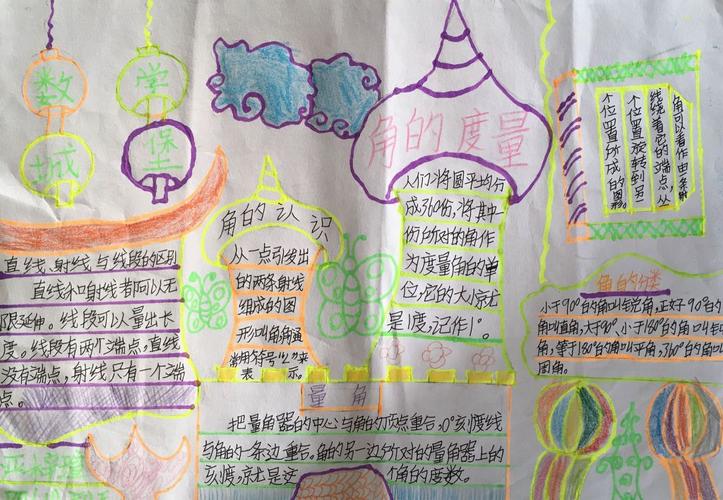 数学
城堡
直线、射线与线段的区别
直线和射线都可以无
限延伸。线段可以量出长
度。线段有两个端点,直线
没有端点,射线只有一个端
点。
角的认识
从一点引发出
的两条射线
组成的图
形叫角角通
常用符号"∠"来
表示。
角的度量
人们将圆平均分
成360份,将其中
份所对的角作
为度量角的单
位,它的大小就
是1度,记作1°。
角可以看作由条射
线绕着它的端点,从
个位置旋转到另
个位置所成的图形。
角的
小于90°的角叫锐角,正好90°的
角叫直角,大于90°、小于180°的角叫钝
角,等于180°的角叫平角,360°的角叫
周角。
量角
把量角器的中心与角的顶点重合,0°刻度线
与角的一条边重合。角的另一边所对的量角器上的
刻度,就是这个角的度数。